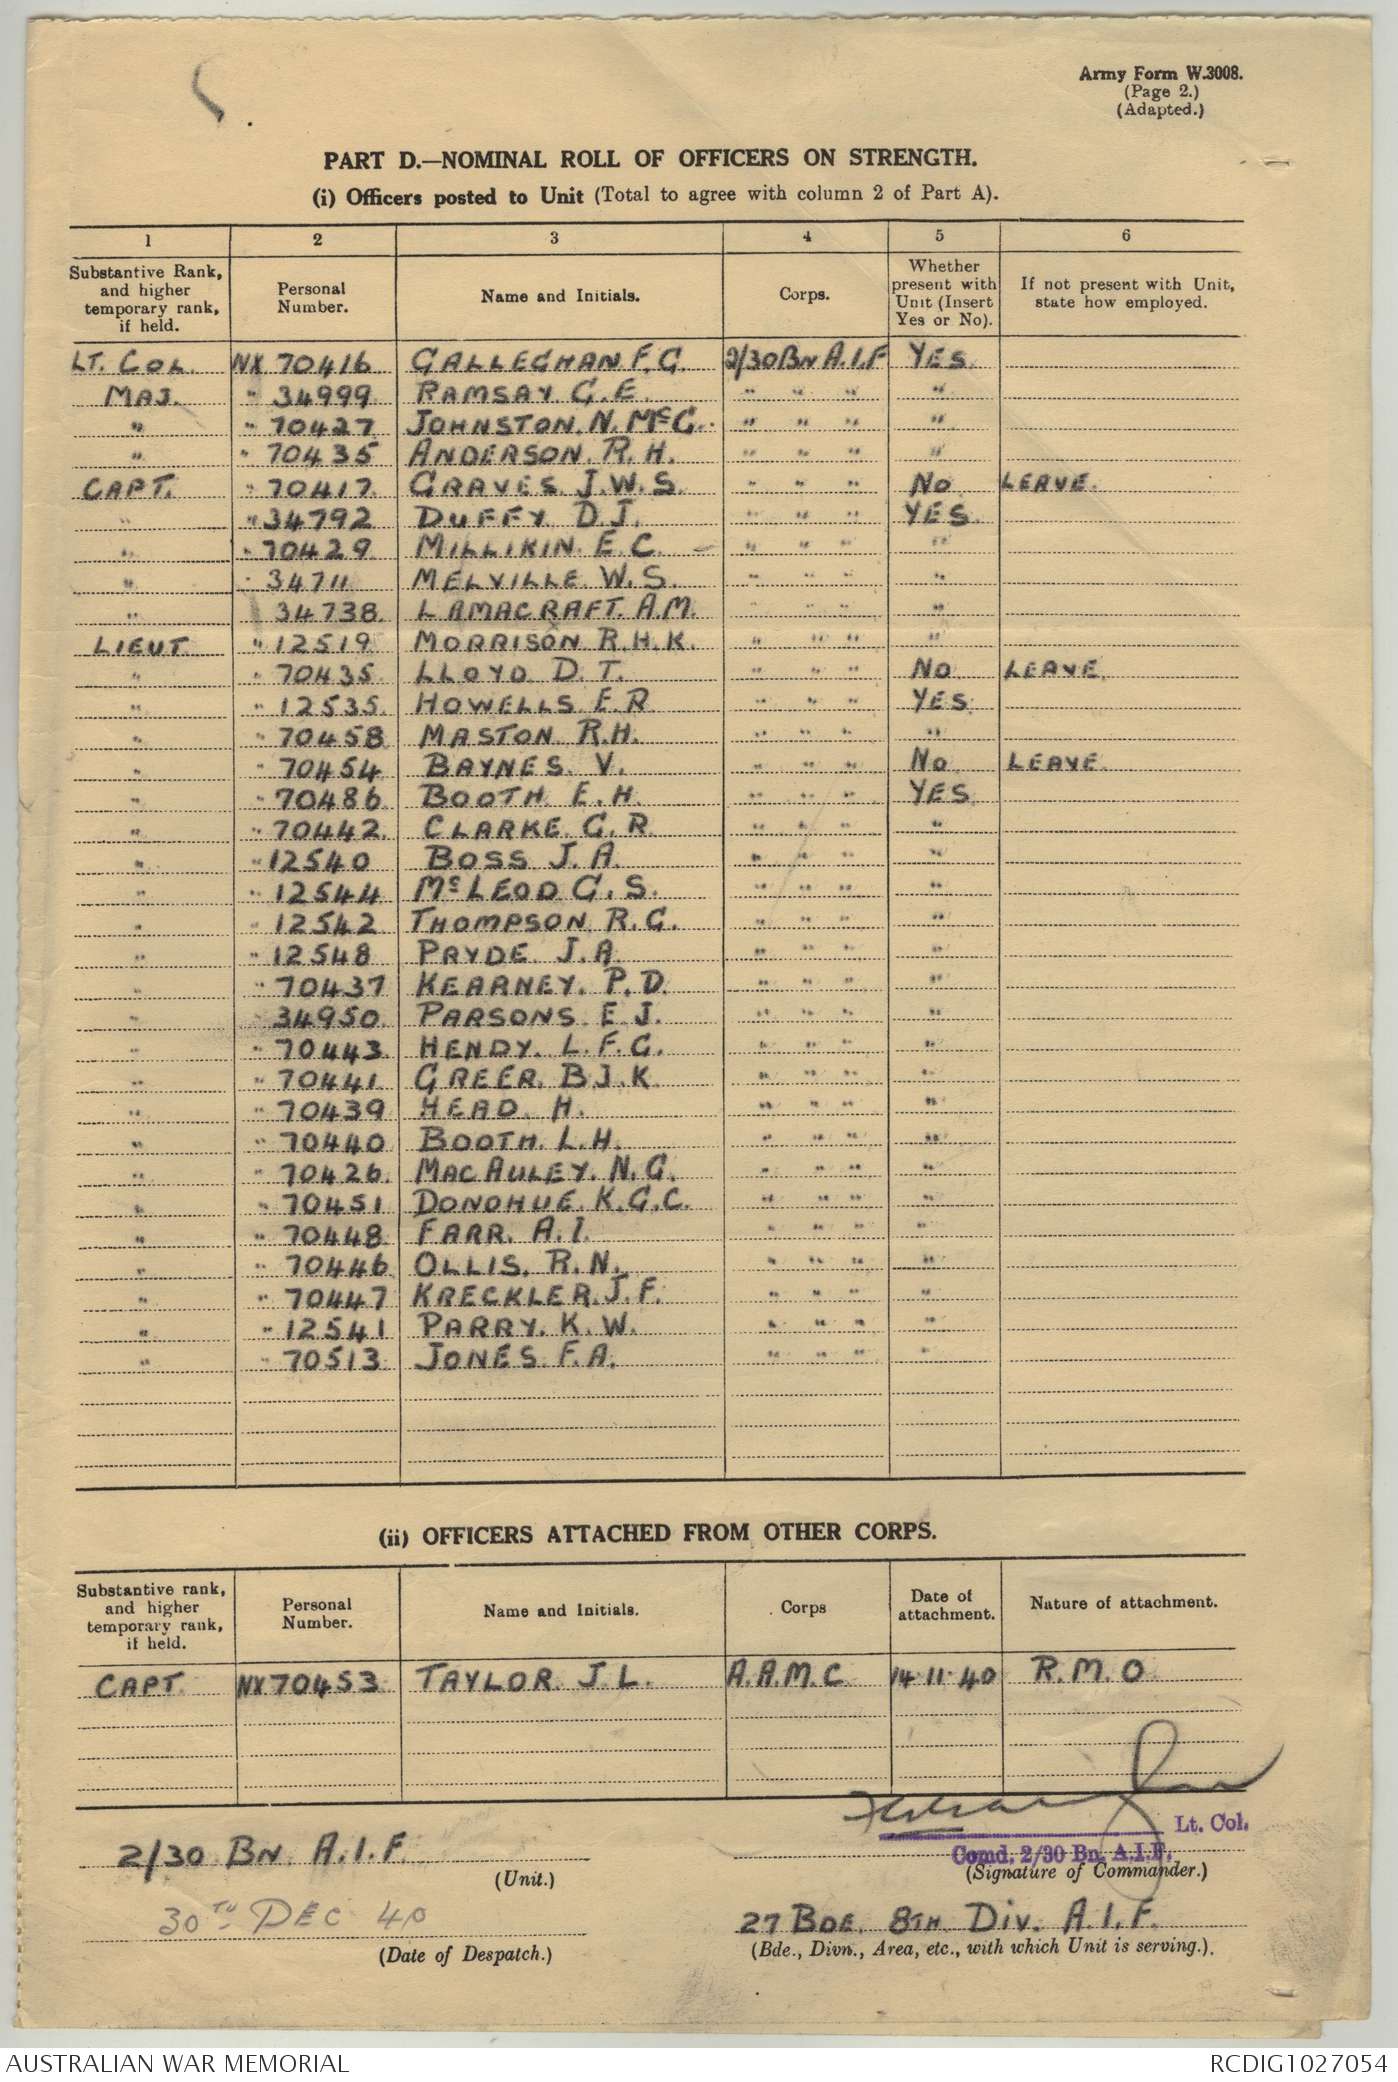 Army Form W.3008.
(Page 2.)
(Adapted.)
PART D.—NOMINAL ROLL OF OFFICERS ON STRENGTH.
(i) Officers posted to Unit (Total to agree with column 2 of Part A).
1 2 3 4 5 6
Substantive Rank, and higher temporary rank, if held. Personal Number. Name and Initials. Corps. Whether present with Unit (Insert Yes or No). If not present with Unit, state how employed.
LT. COL. NX 70416 GALLEGHAN F. G. 2/30 BN A.I.F YES
MAJ. " 34999 RAMSAY. G. E. " " " "
" " 70427 JOHNSTON. N. McG. " " " "
" " 70435 ANDERSON. R. H. " " " "
CAPT. " 70417 GRAVES. J. W. S. " " " NO LEAVE.
" " 34792 DUFFY. D. J. " " " YES.
" " 70429 MILLIKIN. E. C. " " " "
" " 34711 MELVILLE. W. S. " " " "
" " 34738 LAMACRAFT. A. M. " " " "
LIEUT " 12519 MORRISON R. H. K. " " " "
" " 70435 LLOYD D. T. " " " NO LEAVE.
" " 12535 HOWELLS E R " " " YES
" " 70458 MASTON R. H. " " " "
" " 70454 BAYNES. V. " " " NO LEAVE.
" " 70486 BOOTH E. H. " " " YES
" " 70442 CLARKE G. R. " " " "
" " 12540 BOSS J. A. " " " "
" " 12544 McLEOD G. S. " " " "
" " 12542 THOMPSON R. G. " " " "
" " 12548 PRYDE J. A. " " " "
" " 70437 KEARNEY. P. D. " " " "
" 34950 PARSONS E. J. " " " "
" " 70443 HENDY. L. F. G. " " " "
" " 70441 GREER. B J. K. " " " "
" " 70439 HEAD. H. " " " "
" " 70440 BOOTH. L. H. " " " "
" " 70426 MACAULEY. N. G. " " " "
" " 70451 DONOHUE. K. G. C. " " " "
" " 70448 FARR. A. I. " " " "
" " 70446 OLLIS. R. N. " " " "
" " 70447 KRECKLER. J. F. " " " "
" " 12541 PARRY. K. W. " " " "
" " 70513 JONES F. A. " " " "
(ii) OFFICERS ATTACHED FROM OTHER CORPS.
Substantive rank, and higher temporary rank, if held. Personal Number. Name and Initials. Corps Date of attachment. Nature of attachment.
CAPT. NX 70453 TAYLOR J. L. A.A.M.C 14.11.40 R.M.O
Lt. Col.
Comd. 2/30 Bn. A.I.F.
2/30 BN. A.I.F.
(Unit.)
(Signature of Commander.)
30TH DEC 40
(Date of Despatch.)
27 BDE. 8TH DIV. A.I.F.
(Bde., Divn., Area, etc., with which Unit is serving.).
AUSTRALIAN WAR MEMORIAL
RCDIG1027054